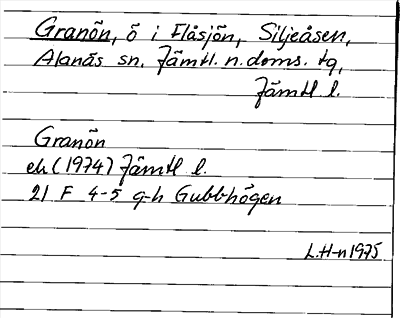 Granön, ö i Flåsjön, Siljeåsen,
Alanäs sn. Jämtl. n. doms. tg,
Jämtl l.
Granön
ek (1974) Jämtl l.
21 F 4-5 g-h Gubbhögen
L.H-n 1975